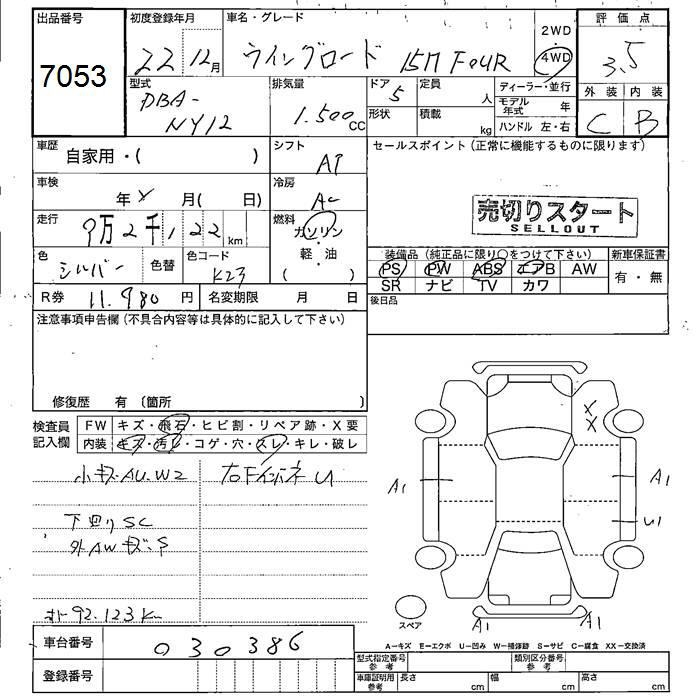 出品番号 初度登録年月 車名・グレード 2WD 評価点
7053 22 12月 ウイングロード 15M FOUR 4WD 3.5
型式 排気量 ドア 定員 ディーラー・並行 外装 内装
DBA- 1.500cc 5 人 モデル年式 年 C B
NY12 形状 積載 kg ハンドル 左・右
車歴 自家用・( ) シフト AT セールスポイント(正常に機能するものに限ります)
車検 年 月( 日) 冷房 AC
売切りスタート
SELLOUT
走行 9万2千122km 燃料 ガソリン・軽油( )
色 シルバー 色替 色コード K23
装備品(純正品に限り○をつけて下さい) 新車保証書
PS PW ABS エアB AW 有・無
SR ナビ TV カワ
R券 11.980円 名変期限 月 日 後日品
注意事項申告欄(不具合内容等は具体的に記入して下さい)
修復歴 有 (箇所 )
検査員記入欄 FW キズ・飛石・ヒビ割・リペア跡・X要
内装 キズ・汚レ・コゲ・穴・スレ・キレ・破レ
小キズ・AU.W2
下回りSC
外AWキズ・S
92.123km
X
X
A1 A1
U1
スペア A1 A1
A-キズ E-エクボ U-凹み W-補修跡 S-サビ C-腐食 XX-交換済
車台番号 030386
登録番号
型式指定番号 参考 類別区分番号 参考
車庫証明用 参考 長さ cm 幅 cm 高さ cm